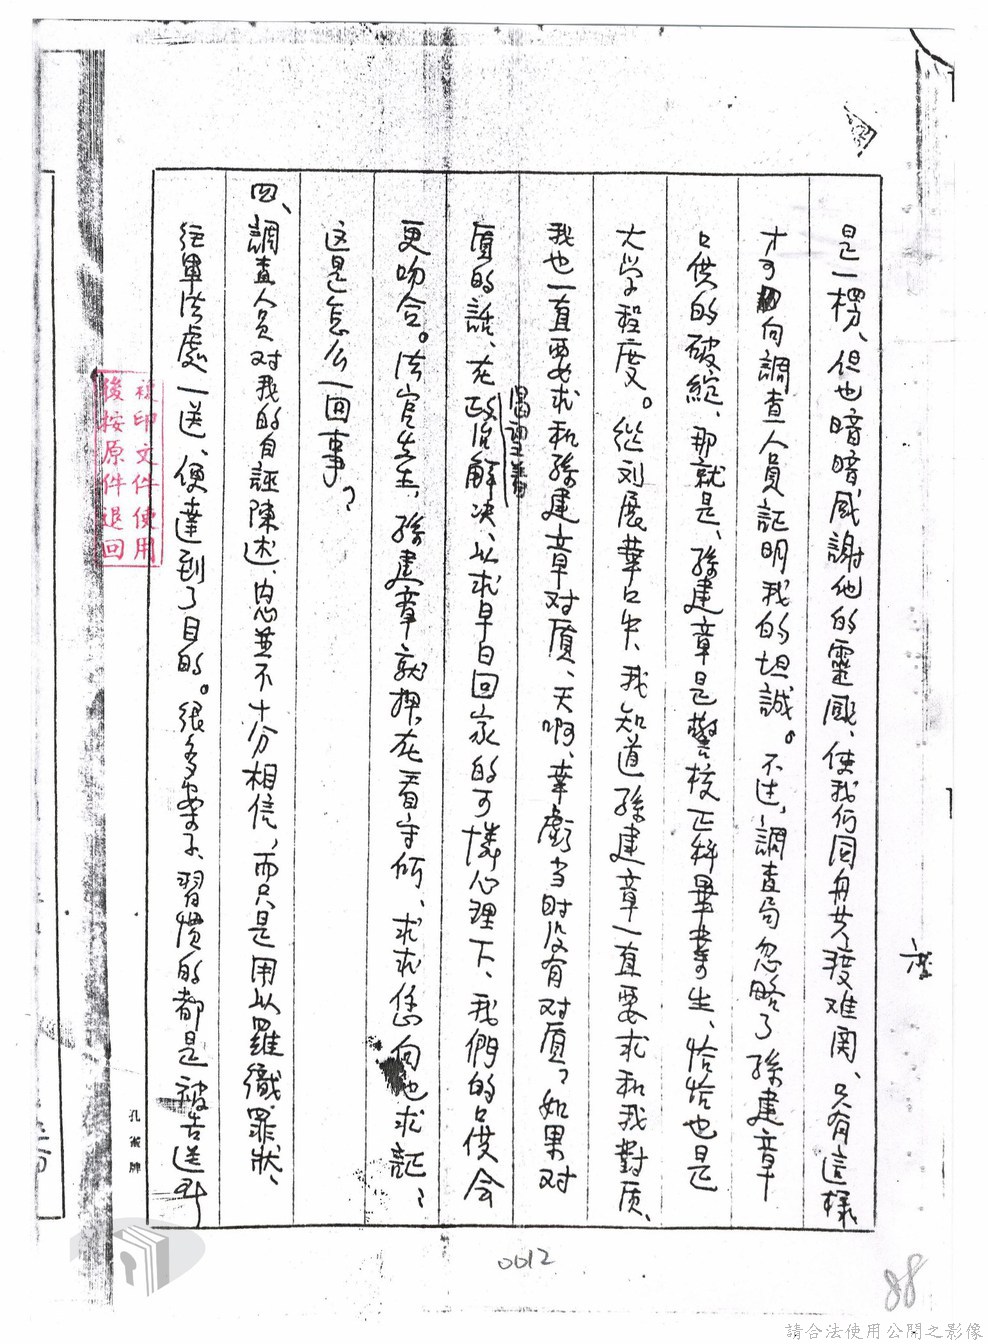 是一楞、但也暗暗感謝他的靈感、使我們同舟共渡难関、只有這樣
才可向調查人員証明我的坦誠。不过，調查局忽略了孫建章
口供的破綻、那就是、孫建章是警校正科畢業生、恰恰也是
大学程度。從刘展華口失、我知道孫建章一直要求和我對质、
我也一直要求和孫建章对質、天啊、幸虧当时没有对質？如果对
質的話、在政治解决、以求早日回家的可憐心理下、我們的口供会
更吻合。法官先生，孫建章就押在看守所、求求您向他求証；
这是怎么一回事？
四、調查人員对我的自誣陳述、並不十分相信，而只是用以羅織罪狀、
往軍法處一送、便達到了目的。很多案子、習慣的都是被告送到
複印文件使用
後按原件退回
孔雀牌
0012
88
請合法使用公開之影像